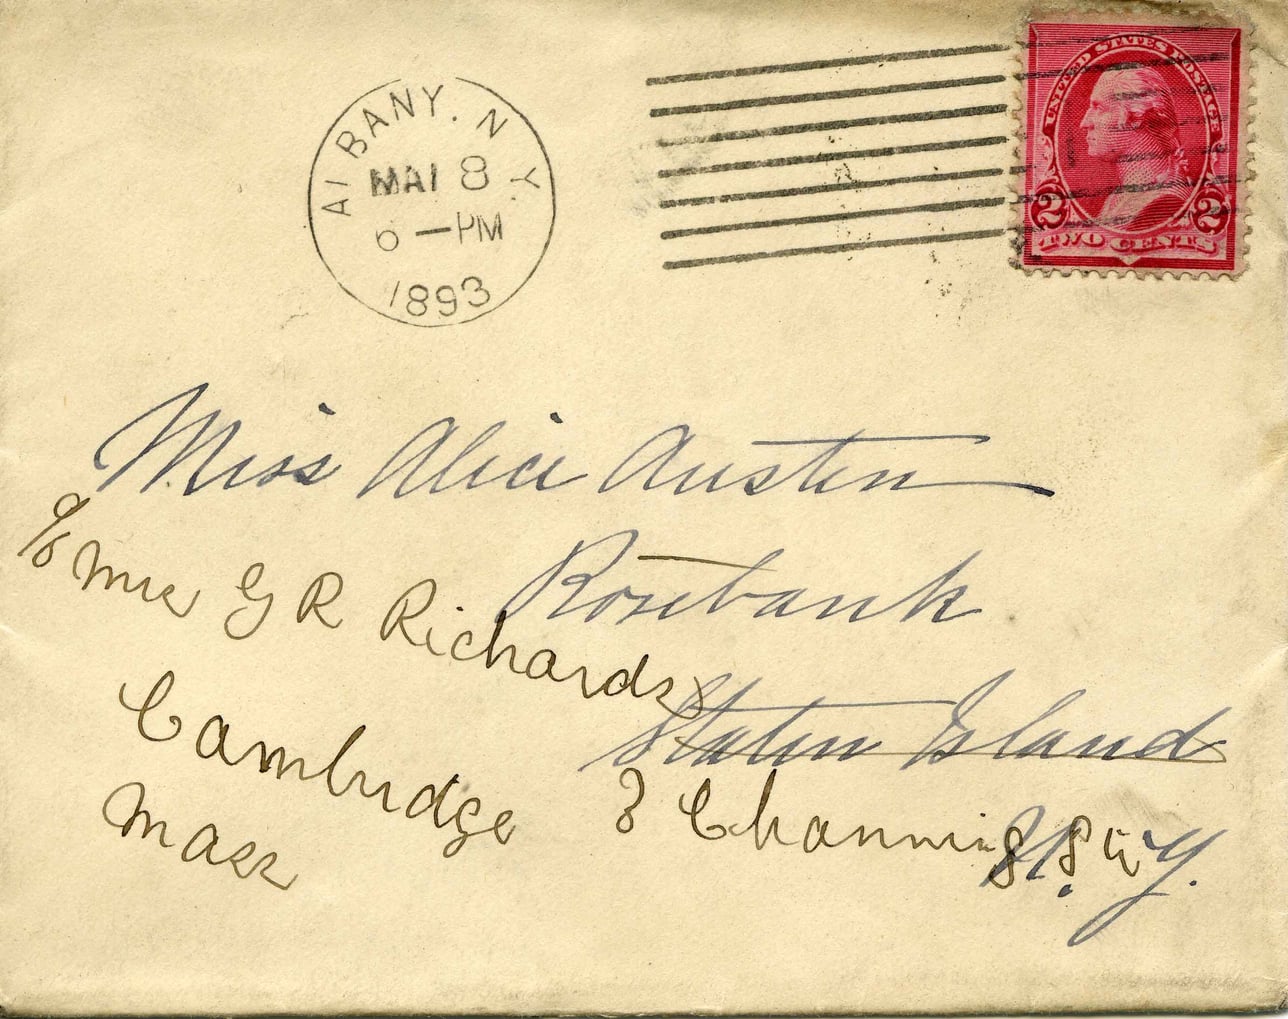 ALBANY. N. Y.
MAR 8
6 — PM
1893
UNITED STATES POSTAGE
2 2
TWO CENTS
Miss Alice Austen
Rosebank
Staten Island
N. Y.
c/o Mrs G R Richards
Cambridge
Mass
3 Channing